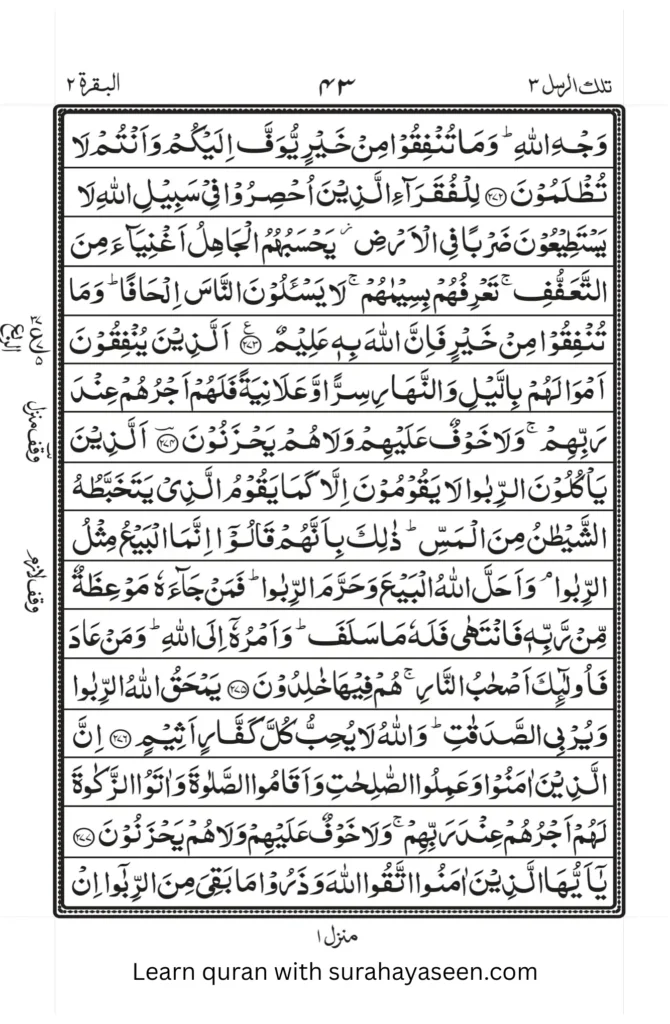 تلك الرسل ٣
٤٣
البقرة ٢
وَجْهِ اللّٰهِ ؕ وَمَا تُنْفِقُوْا مِنْ خَيْرٍ يُّوَفَّ اِلَيْكُمْ وَاَنْتُمْ لَا
تُظْلَمُوْنَ ﴿۲۷۲﴾ لِلْفُقَرَآءِ الَّذِيْنَ اُحْصِرُوْا فِيْ سَبِيْلِ اللّٰهِ لَا
يَسْتَطِيْعُوْنَ ضَرْبًا فِي الْاَرْضِ ؗ يَحْسَبُهُمُ الْجَاهِلُ اَغْنِيَآءَ مِنَ
التَّعَفُّفِ ۚ تَعْرِفُهُمْ بِسِيْمٰىهُمْ ۚ لَا يَسْـَٔلُوْنَ النَّاسَ اِلْحَافًا ؕ وَمَا
تُنْفِقُوْا مِنْ خَيْرٍ فَاِنَّ اللّٰهَ بِهٖ عَلِيْمٌ ﴿۲۷۳﴾ ع اَلَّذِيْنَ يُنْفِقُوْنَ
اَمْوَالَهُمْ بِالَّيْلِ وَالنَّهَارِ سِرًّا وَّعَلَانِيَةً فَلَهُمْ اَجْرُهُمْ عِنْدَ
رَبِّهِمْ ۚ وَلَا خَوْفٌ عَلَيْهِمْ وَلَا هُمْ يَحْزَنُوْنَ ﴿۲۷۴﴾ اَلَّذِيْنَ
يَاْكُلُوْنَ الرِّبٰوا لَا يَقُوْمُوْنَ اِلَّا كَمَا يَقُوْمُ الَّذِيْ يَتَخَبَّطُهُ
الشَّيْطٰنُ مِنَ الْمَسِّ ؕ ذٰلِكَ بِاَنَّهُمْ قَالُوْٓا اِنَّمَا الْبَيْعُ مِثْلُ
الرِّبٰوا ۘ وَاَحَلَّ اللّٰهُ الْبَيْعَ وَحَرَّمَ الرِّبٰوا ؕ فَمَنْ جَآءَهٗ مَوْعِظَةٌ
مِّنْ رَّبِّهٖ فَانْتَهٰى فَلَهٗ مَا سَلَفَ ؕ وَاَمْرُهٗٓ اِلَى اللّٰهِ ؕ وَمَنْ عَادَ
فَاُولٰٓئِكَ اَصْحٰبُ النَّارِ ۚ هُمْ فِيْهَا خٰلِدُوْنَ ﴿۲۷۵﴾ يَمْحَقُ اللّٰهُ الرِّبٰوا
وَيُرْبِي الصَّدَقٰتِ ؕ وَاللّٰهُ لَا يُحِبُّ كُلَّ كَفَّارٍ اَثِيْمٍ ﴿۲۷۶﴾ اِنَّ
الَّذِيْنَ اٰمَنُوْا وَعَمِلُوا الصّٰلِحٰتِ وَاَقَامُوا الصَّلٰوةَ وَاٰتَوُا الزَّكٰوةَ
لَهُمْ اَجْرُهُمْ عِنْدَ رَبِّهِمْ ۚ وَلَا خَوْفٌ عَلَيْهِمْ وَلَا هُمْ يَحْزَنُوْنَ ﴿۲۷۷﴾
يٰٓاَيُّهَا الَّذِيْنَ اٰمَنُوا اتَّقُوا اللّٰهَ وَذَرُوْا مَا بَقِيَ مِنَ الرِّبٰٓوا اِنْ
الربع
وقف منزل
وقف لازم
منزل ١
Learn quran with surahayaseen.com